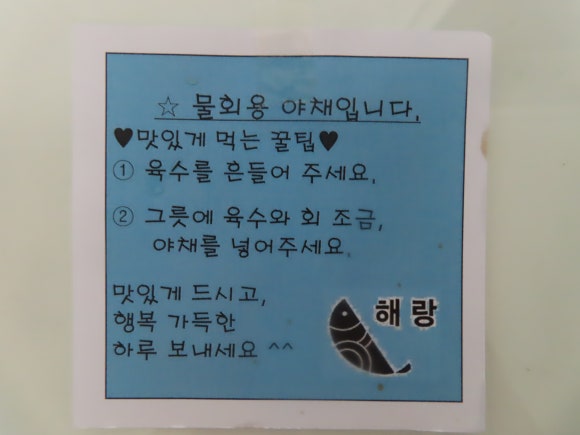 ☆ 물회용 야채입니다.
♥맛있게 먹는 꿀팁♥
① 육수를 흔들어 주세요.
② 그릇에 육수와 회 조금,
야채를 넣어주세요.
맛있게 드시고,
행복 가득한
하루 보내세요 ^^
해랑